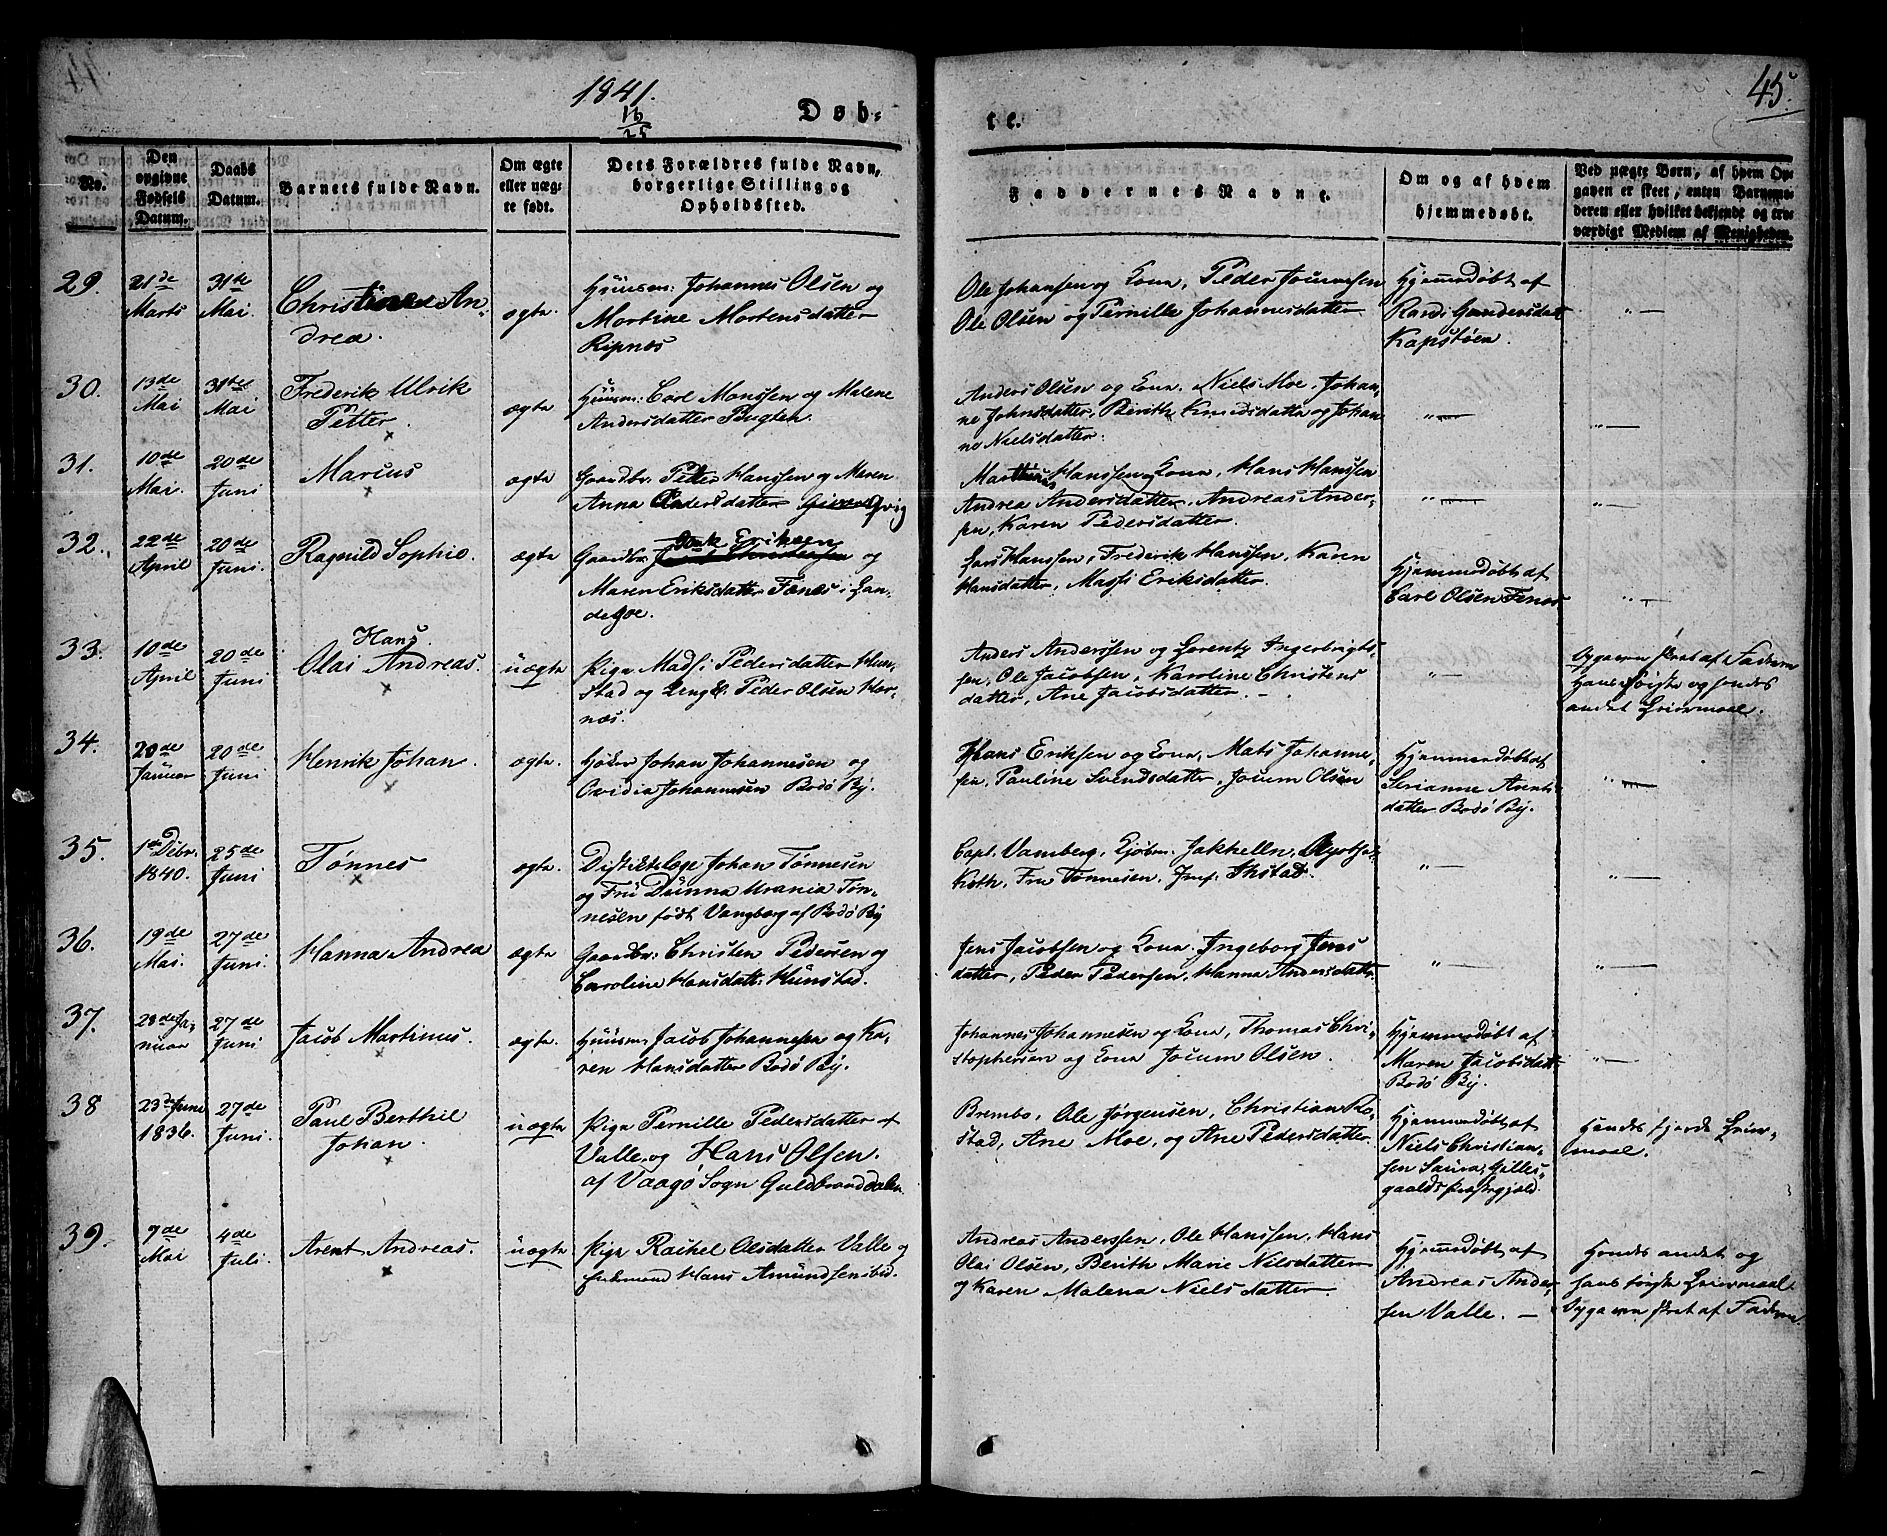 1841.
16/25
Døb-
te.
45.
No.
Den opgivne Fødsels Datum.
Daabs Datum.
Barnets fulde Navn.
Om ægte eller uægte født.
Dets Forældres fulde Navn, borgerlige Stilling og Opholdssted.
Faddernes Navne.
Om og af hvem hjemmedøbt.
Ved uægte Børn, af hvem Opgaven er skeet, enten Barnemoderen eller hvilket bekjendt og troværdigt Medlem af Menigheden.
29. 21de Marts 31te Mai. Christine An-
drea. ægte. Huusm: Johannes Olsen og
Martine Mortensdatter
Ripnæs
Ole Johansen og Kona, Peder
Ole Olsen og Pernille Johannesdatter
Hjemmedøbt af
Randi Gundersdatt
Kapstøen.
30. 13de Mai 31te Mai Frederik Ulrik
Petter. ægte Huusm: Carl Monssen og Malene
Andersdatter Bugten.
Anders Olsen og Kona, Niels Moe, Johan-
ne Johnsdatter, Berith Knudsdatter og Johan
ne Nielsdatter.
31. 10de Mai. 20de Juni Marcus ægte Gaardbr. Peder Hanssen og Maren
Anna Andersdatter
Hanssen og Kona, Hans Hanssen
Andrea Andersdatter, Andreas Ander-
sen, Karen Pedersdatter.
32. 22de April 20de Juni. Ragnild Sophie. ægte Gaardbr. Eriksen og
Maren Eriksdatter Fenes i Lan-
degoe.
Lars Hanssen, Frederik Hanssen, Karen
Hansdatter, Massi Eriksdatter.
Hjemmedøbt af
Carl Olsen Fenes
33. 10de April 20de Juni Hans
Olai Andreas. uægte Pige Madsi Pedersdatter Hun-
stad og Ungk. Peder Olsen Her-
næs.
Anders Anderssen og Lorentz Ingebrigts-
sen, Ole Jacobsen, Karoline Christens
datter, Ane Jacobsdatter.
Opgaven skeet af Faderen
Hans første og hendes
andet Leiermaal.
34. 20de Januar 20de Juni Henrik Johan. ægte. Johan Johannesen og
Ovidia Johannesen Bodø By.
Hans Eriksen og Kona, Mats Johanne-
sen, Pauline Svendsdatter, Jocum Olsen
Hjemmedøbt af
Serianne Arents
datter Bodø By.
35. 1ste Debr. 1840. 25de Juni Tønnes ægte. Distriktslæge Johan Tønnesen
og Fru Dunna Urania Tøn-
nesen født Vangberg af Bodø By
Capt. Vamberg, Kjøbm. Jakhelln,
Koth, Fru Tønnesen, Jmf. Ihstad.
36. 19de Mai. 27de Juni. Hanna Andrea ægte Gaardbr: Christen Pedersen og
Caroline Hansdatt: Hunstad.
Jens Jacobsen og Kona, Ingeborg Jens
datter, Peder Pedersen, Hanna Andersdatt.
37. 28de Ja-
nuar 27de Juni Jacob Martinus. ægte. Huusm: Jacob Johannesen og Ka-
ren Hansdatter Bodø By.
Johannes Johannesen og Kona, Thomas Chri-
stophersen og Kona Jocum Olsen.
Hjemmedøbt af
Maren Jacobsdatt
Bodø By.
38 23de Juni 1836. 27de Juni. Paul Berthil
Johan. uægte Pige Pernille Pedersdatter af
Valle og Hans Olsen.
af Vaagø Sogn Guldbrandsdalen
Brembo, Ole Jørgensen, Christian Ro-
stad, Ane Moe, og Ane Pedersdatter.
Hjemmedøbt af
Niels Christian-
sen Gilles-
gaalds Præstegjeld.
Hendes fjerde Leier-
maal.
39. 7de Mai 4de Juli. Arent Andreas. uægte Pige Rachel Olsdatter Valle og
Hans Amundsen ibid.
Andreas Anderssen, Ole Hanssen, Hans
Olai Olsen, Berith Marie Nilsdatter
og Karen Malena Nielsdatter.
Hjemmedøbt af
Andreas Ander-
sen Valle.
Hendes andet og
hans første Leiermaal
Opgaven skeet af Faderen.